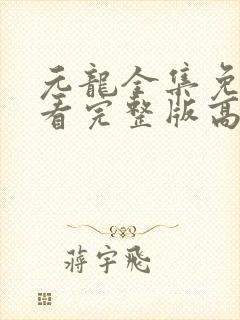 元龍全集免
看完整版高
蔣宇飛